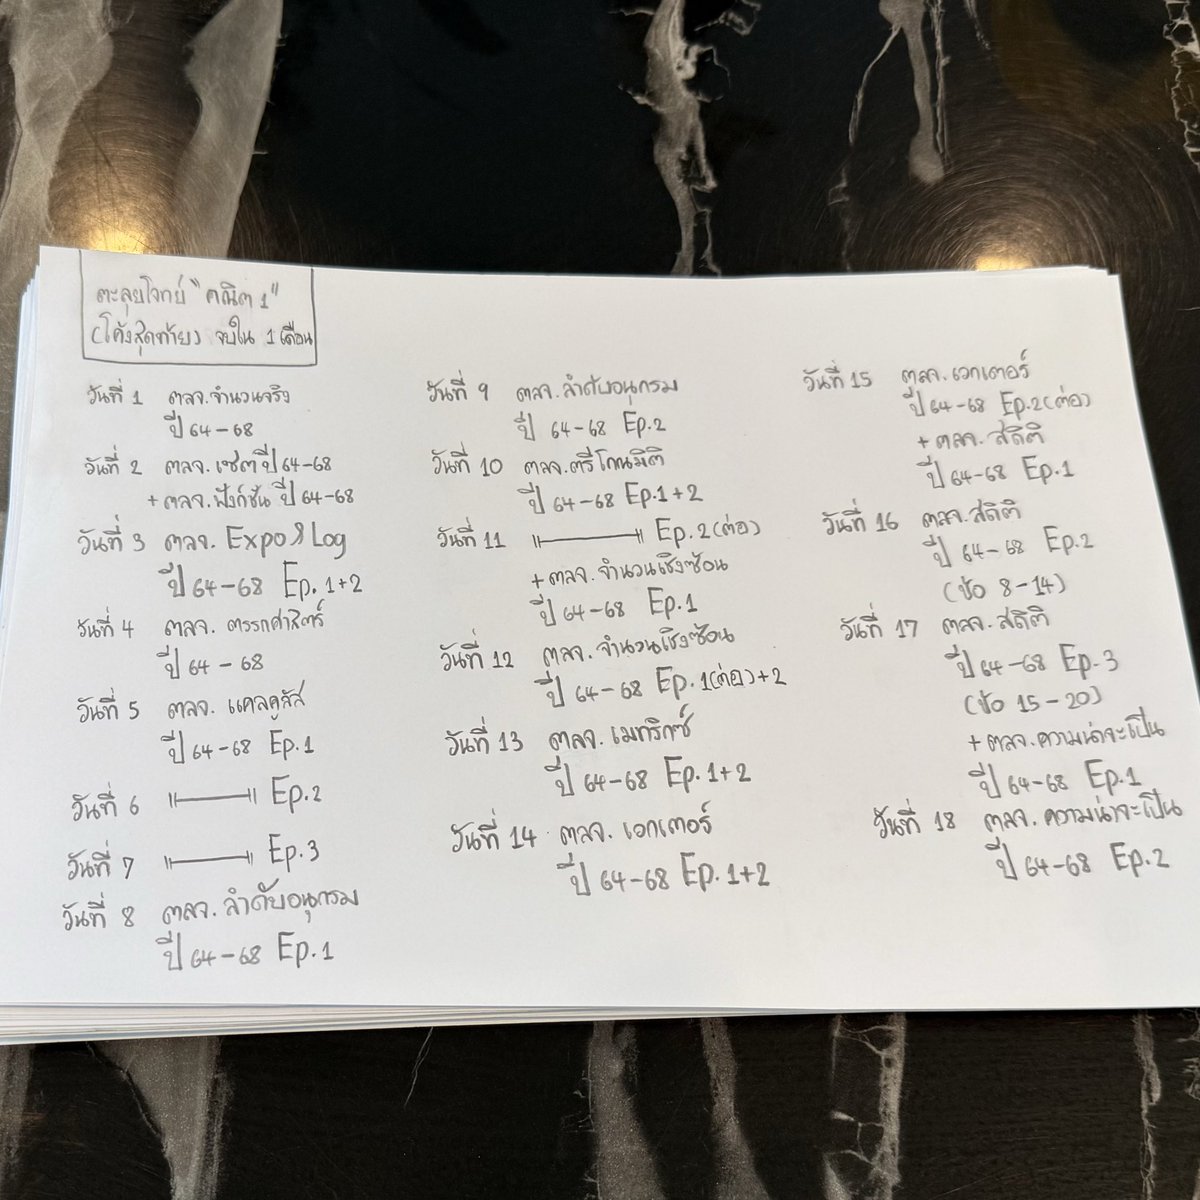 ตะลุยโจทย์ "คณิต 1"
(โค้งสุดท้าย) จบใน 1 เดือน
วันที่ 1 ตลจ.จำนวนจริง
ปี 64-68
วันที่ 2 ตลจ.เซตปี 64-68
+ ตลจ.ฟังก์ชัน ปี 64-68
วันที่ 3 ตลจ. Expo & Log
ปี 64-68 Ep. 1+2
วันที่ 4 ตลจ. ตรรกศาสตร์
ปี 64-68
วันที่ 5 ตลจ. แคลคูลัส
ปี 64-68 Ep.1
วันที่ 6 "————" Ep.2
วันที่ 7 "————" Ep.3
วันที่ 8 ตลจ. ลำดับอนุกรม
ปี 64-68 Ep.1
วันที่ 9 ตลจ. ลำดับอนุกรม
ปี 64-68 Ep.2
วันที่ 10 ตลจ.ตรีโกณมิติ
ปี 64-68 Ep.1+2
วันที่ 11 "————" Ep.2(ต่อ)
+ ตลจ. จำนวนเชิงซ้อน
ปี 64-68 Ep.1
วันที่ 12 ตลจ. จำนวนเชิงซ้อน
ปี 64-68 Ep.1(ต่อ)+2
วันที่ 13 ตลจ. เมทริกซ์
ปี 64-68 Ep.1+2
วันที่ 14 ตลจ. เวกเตอร์
ปี 64-68 Ep.1+2
วันที่ 15 ตลจ. เวกเตอร์
ปี 64-68 Ep.2(ต่อ)
+ ตลจ. สถิติ
ปี 64-68 Ep.1
วันที่ 16 ตลจ.สถิติ
ปี 64-68 Ep.2
(ข้อ 8-14)
วันที่ 17 ตลจ. สถิติ
ปี 64-68 Ep.3
(ข้อ 15-20)
+ ตลจ.ความน่าจะเป็น
ปี 64-68 Ep.1
วันที่ 18 ตลจ. ความน่าจะเป็น
ปี 64-68 Ep.2